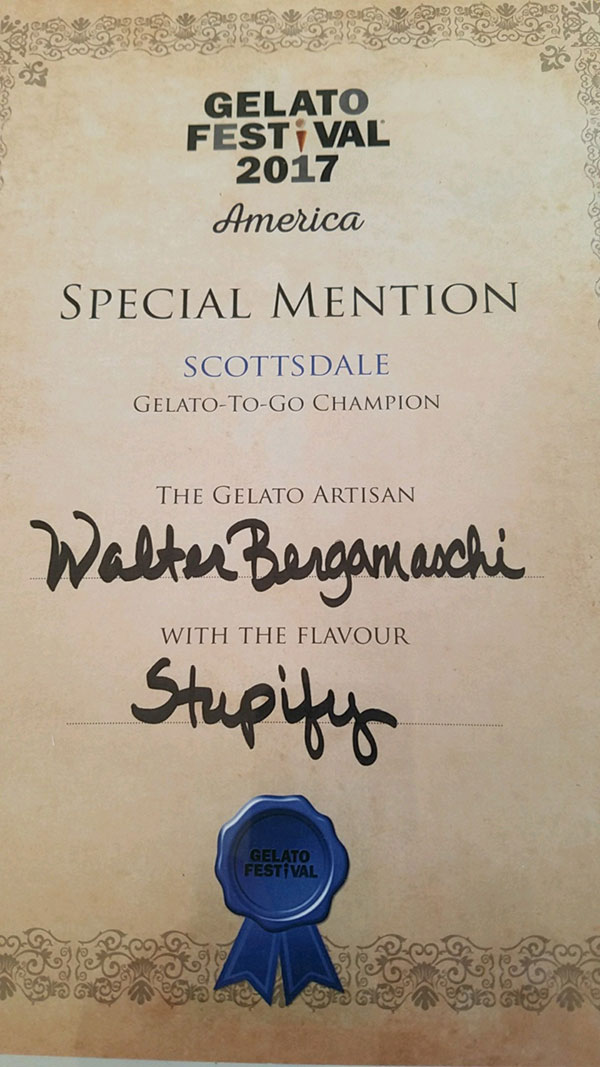 GELATO
FESTiVAL
2017
America
SPECIAL MENTION
SCOTTSDALE
GELATO-TO-GO CHAMPION
THE GELATO ARTISAN
Walter Bergamaschi
WITH THE FLAVOUR
Stupify
GELATO
FESTiVAL